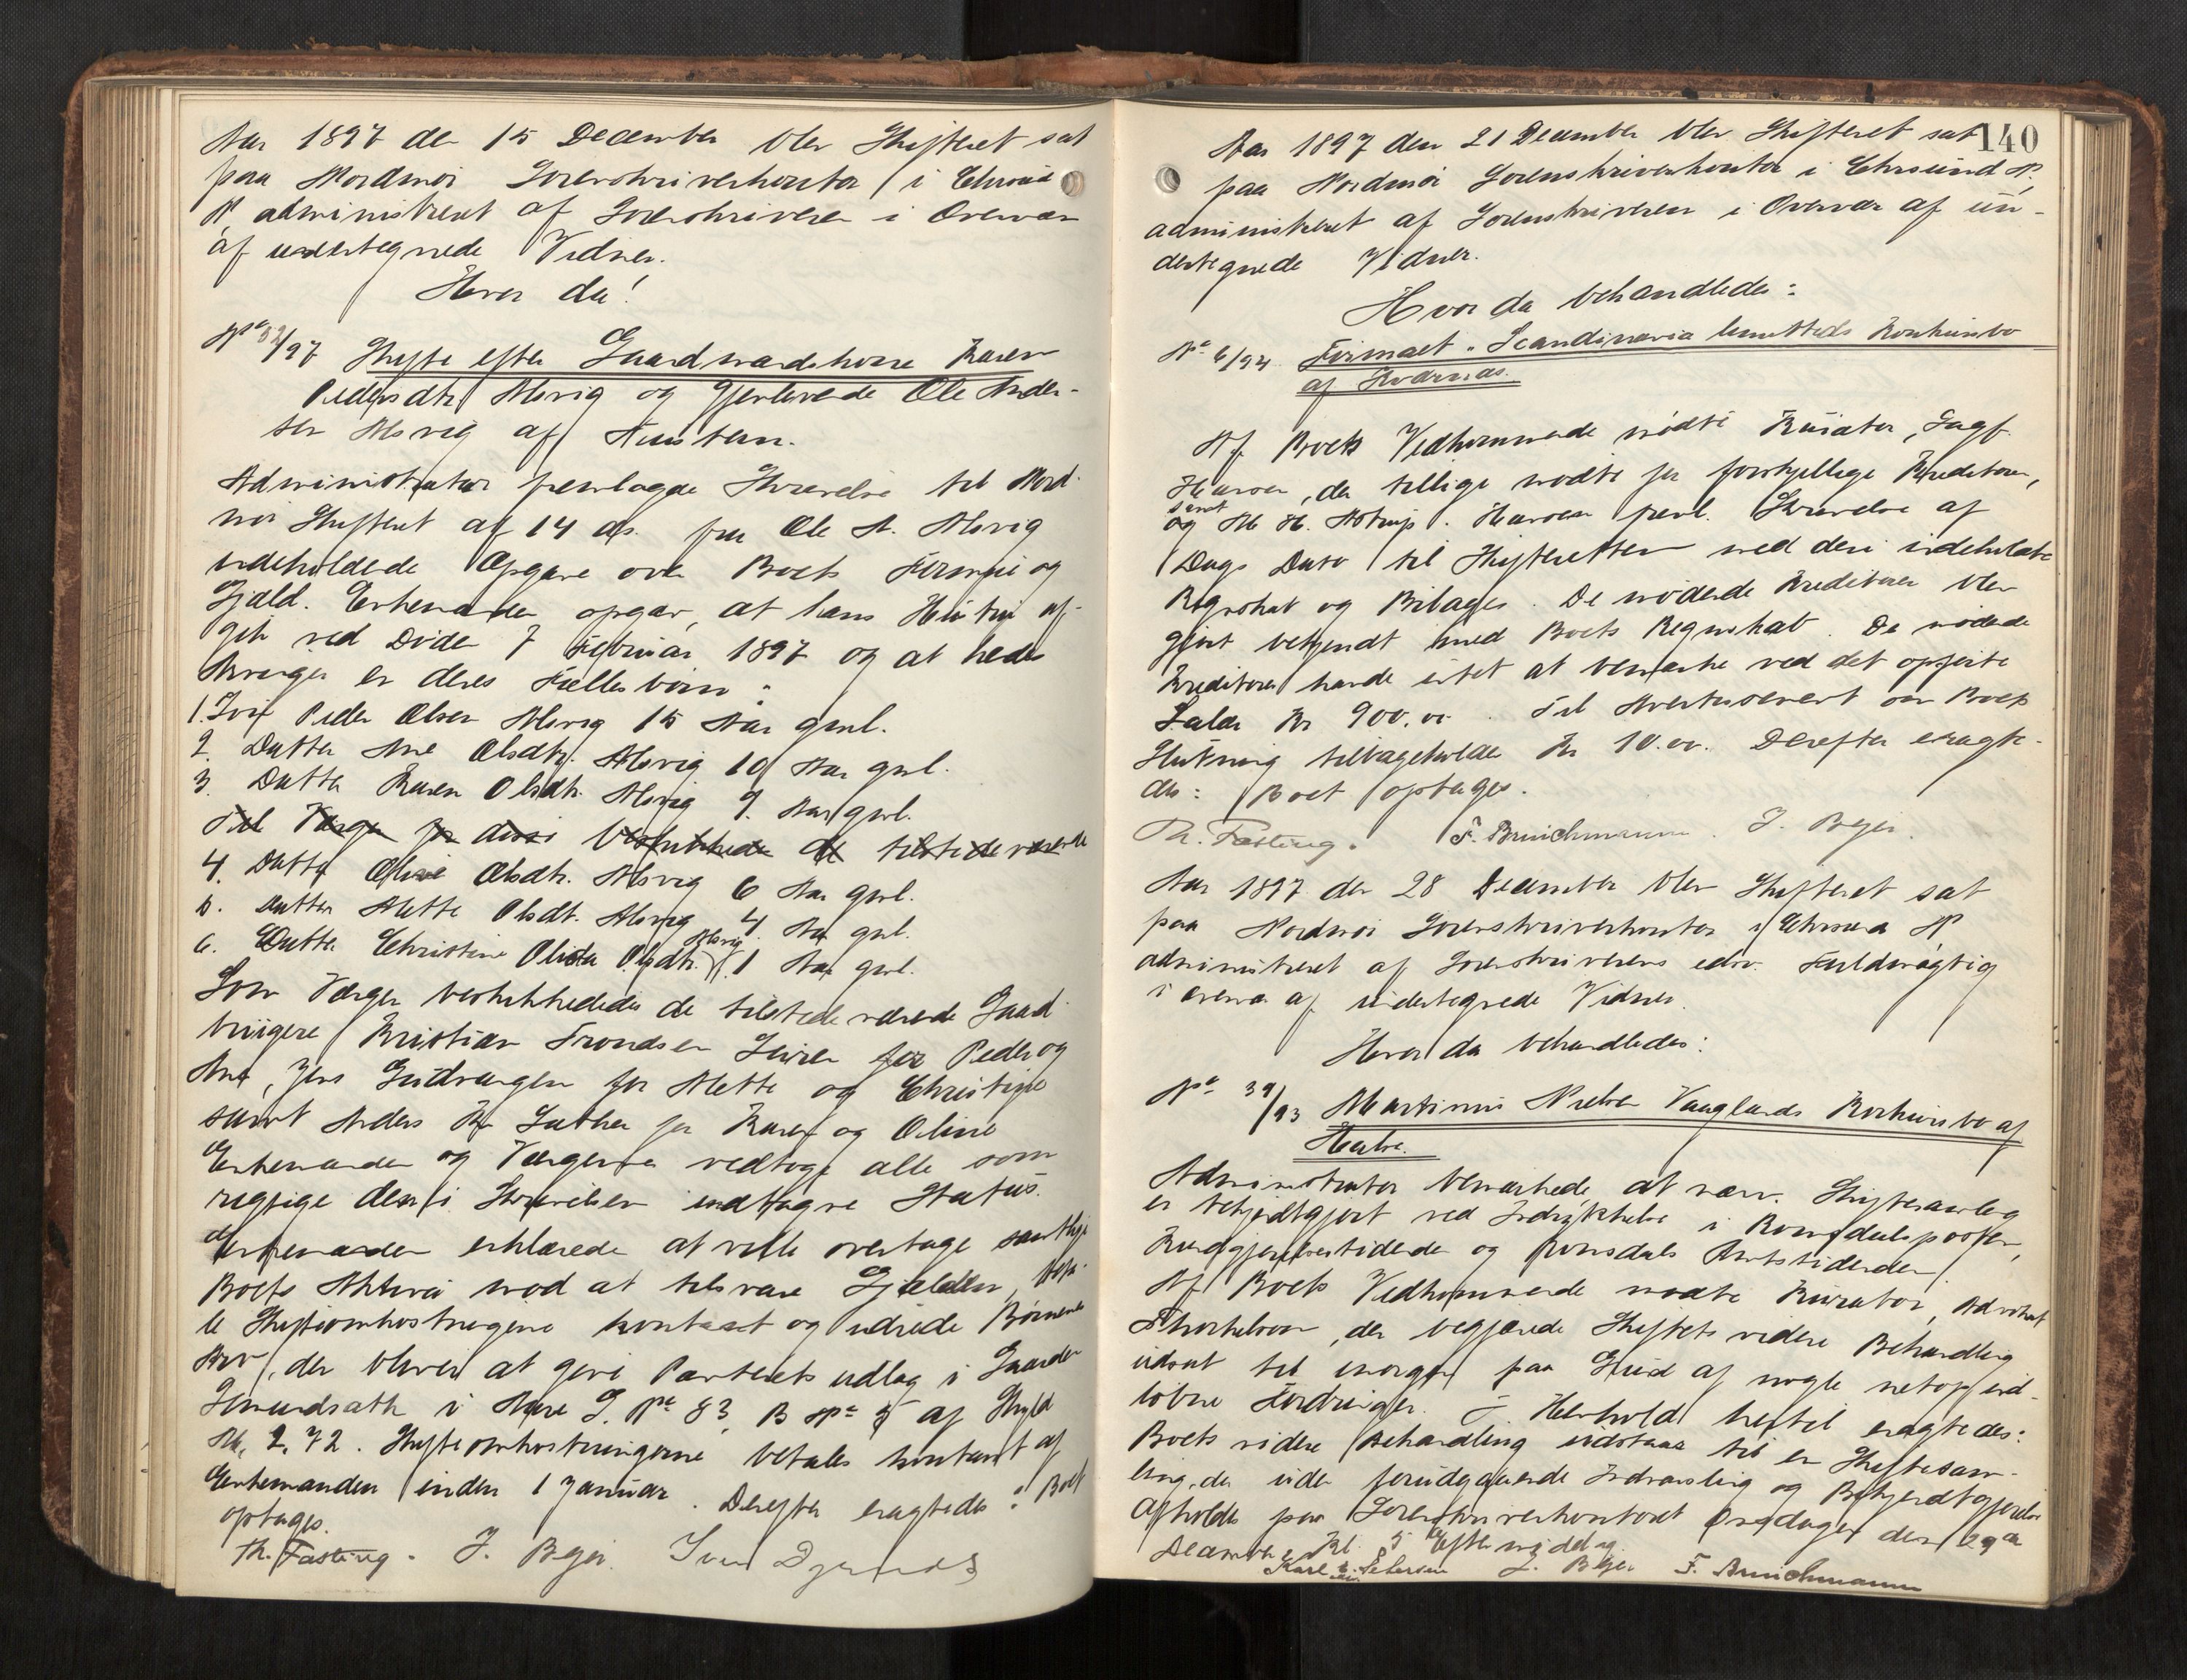 Aar 1897 den 15 December blev Skifteret sat
paa Nordmør Sorenskriverkontor i Chrsund
N, administreret af Sorenskriveren i Overvær
af undertegnede Vidner.
Hvor da!
No 32/97 Skifte efter Gaardmandskone Karen
Pedersdtr Alsvig og gjenlevende Ole Ander-
sen Alsvig af
Administrator fremlagde Skrivelse til Nord-
mør Skifteret af 14 ds. fra Ole A. Alsvig
indeholdende Opgave over Boets Formue og
Gjæld. Enkemanden opgav, at hans Hustru af-
gik ved Døden 7 Februar 1897 og at hendes
Arvinger er deres Fællesbørn:
1. Søn Peder Olsen Alsvig 15 Aar gml.
2. Datter Ane Olsdtr. Alsvig 10 Aar gml.
3. Datter Karen Olsdtr. Alsvig 9. Aar gml.
Til Værger for disse beskikkedes de tilstedeværende
4. Datter Oline Olsdtr. Alsvig 6 Aar gml.
5. Datter Mette Olsdt. Alsvig 4 Aar gml.
6. Datter Christine Olida Olsdtr. Alsvig 1 Aar gml.
Som Værger beskikkededes de tilstedeværende Gaard
brugere Kristian Trondsen for Peder og
Ane, Jens for Mette og Christine
samt Anders for Karen og Oline
Enkemanden og Værgerne vedtoge alle som
rigtige den i Skrivelsen indtagne Status.
Enkemanden erklærede at ville overtage samtlige
Boets Aktiva mod at tilsvare Gjælden, beta-
le Skifteomkostningerne kontant og udrede Børnenes
Arv, der bliver at give Panterets udlæg i Gaarden
i Aure G. No 83, B No 5 af Skyld
Mk. 2,72. Skifteomkostningerne betales kontant af
Enkemanden inden 1 Januar. Derefter eragtedes: Boet
optages.
Th. Fasting. J. Beyer.
140
Aar 1897 den 21 December blev Skifteret sat
paa Nordmør Sorenskriverkontor i Chrsund N,
administreret af Sorenskriveren i Overvær af un-
dertegnede Vidner.
Hvor da behandledes:
No 6/94 Firmaet "Scandinavia limitteds Konkursbo
af
Af Boets Vedkommende mødte Kurator, Sagf.
der tillige mødte for forskjellige Kreditorer,
samt
og M. H. Astrup. freml. Skrivelse af
Dags Dato til Skifteretten med deri indeholdte
Regnskab og Bilager. De mødende Kreditorer blev
gjort bekjendt med Boets Regnskab. De mødende
Kreditorer havde intet at bemærke ved det opførte
Salær Kr 900.00. Til Avertissement om Boets
Slutning tilbageholdes Kr 10.00. Derefter eragte-
des: Boet optages.
Th. Fasting. F. Bruichmann. J. Beyer.
Aar 1897 den 28 December blev Skifteret sat
paa Nordmør Sorenskriverkontor i Chrsund N
administreret af Sorenskriverens edsv. Fuldmægtig
i overvær af undertegnede Vidner.
Hvor da behandledes:
No 39/93 Martinus Nielsen Vaaglands Konkursbo af
Administrator bemærkede, at nærv. Skiftesamling
er bekjendtgjort ved Indrykkelse i Romsdalsposten,
Kundgjørelsestidende og Romsdals Amtstidende.
Af Boets Vedkommende mødte Kurator, Advokat
Thorkelson, der begjærede Skiftets videre Behandling
udsat til imorgen paa Grund af nogle netop ind-
løbne Fordringer. I Henhold hertil eragtedes:
Boets videre Behandling udstaar til en Skiftesam-
ling, der uden forudgaaende Indvarsling og Bekjendtgjørelse
afholdes paa Sorenskriverkontoret Onsdagen den 29de
December Kl. 5 Eftermiddag.
Karl Petersen J. Beyer F. Bruichmann